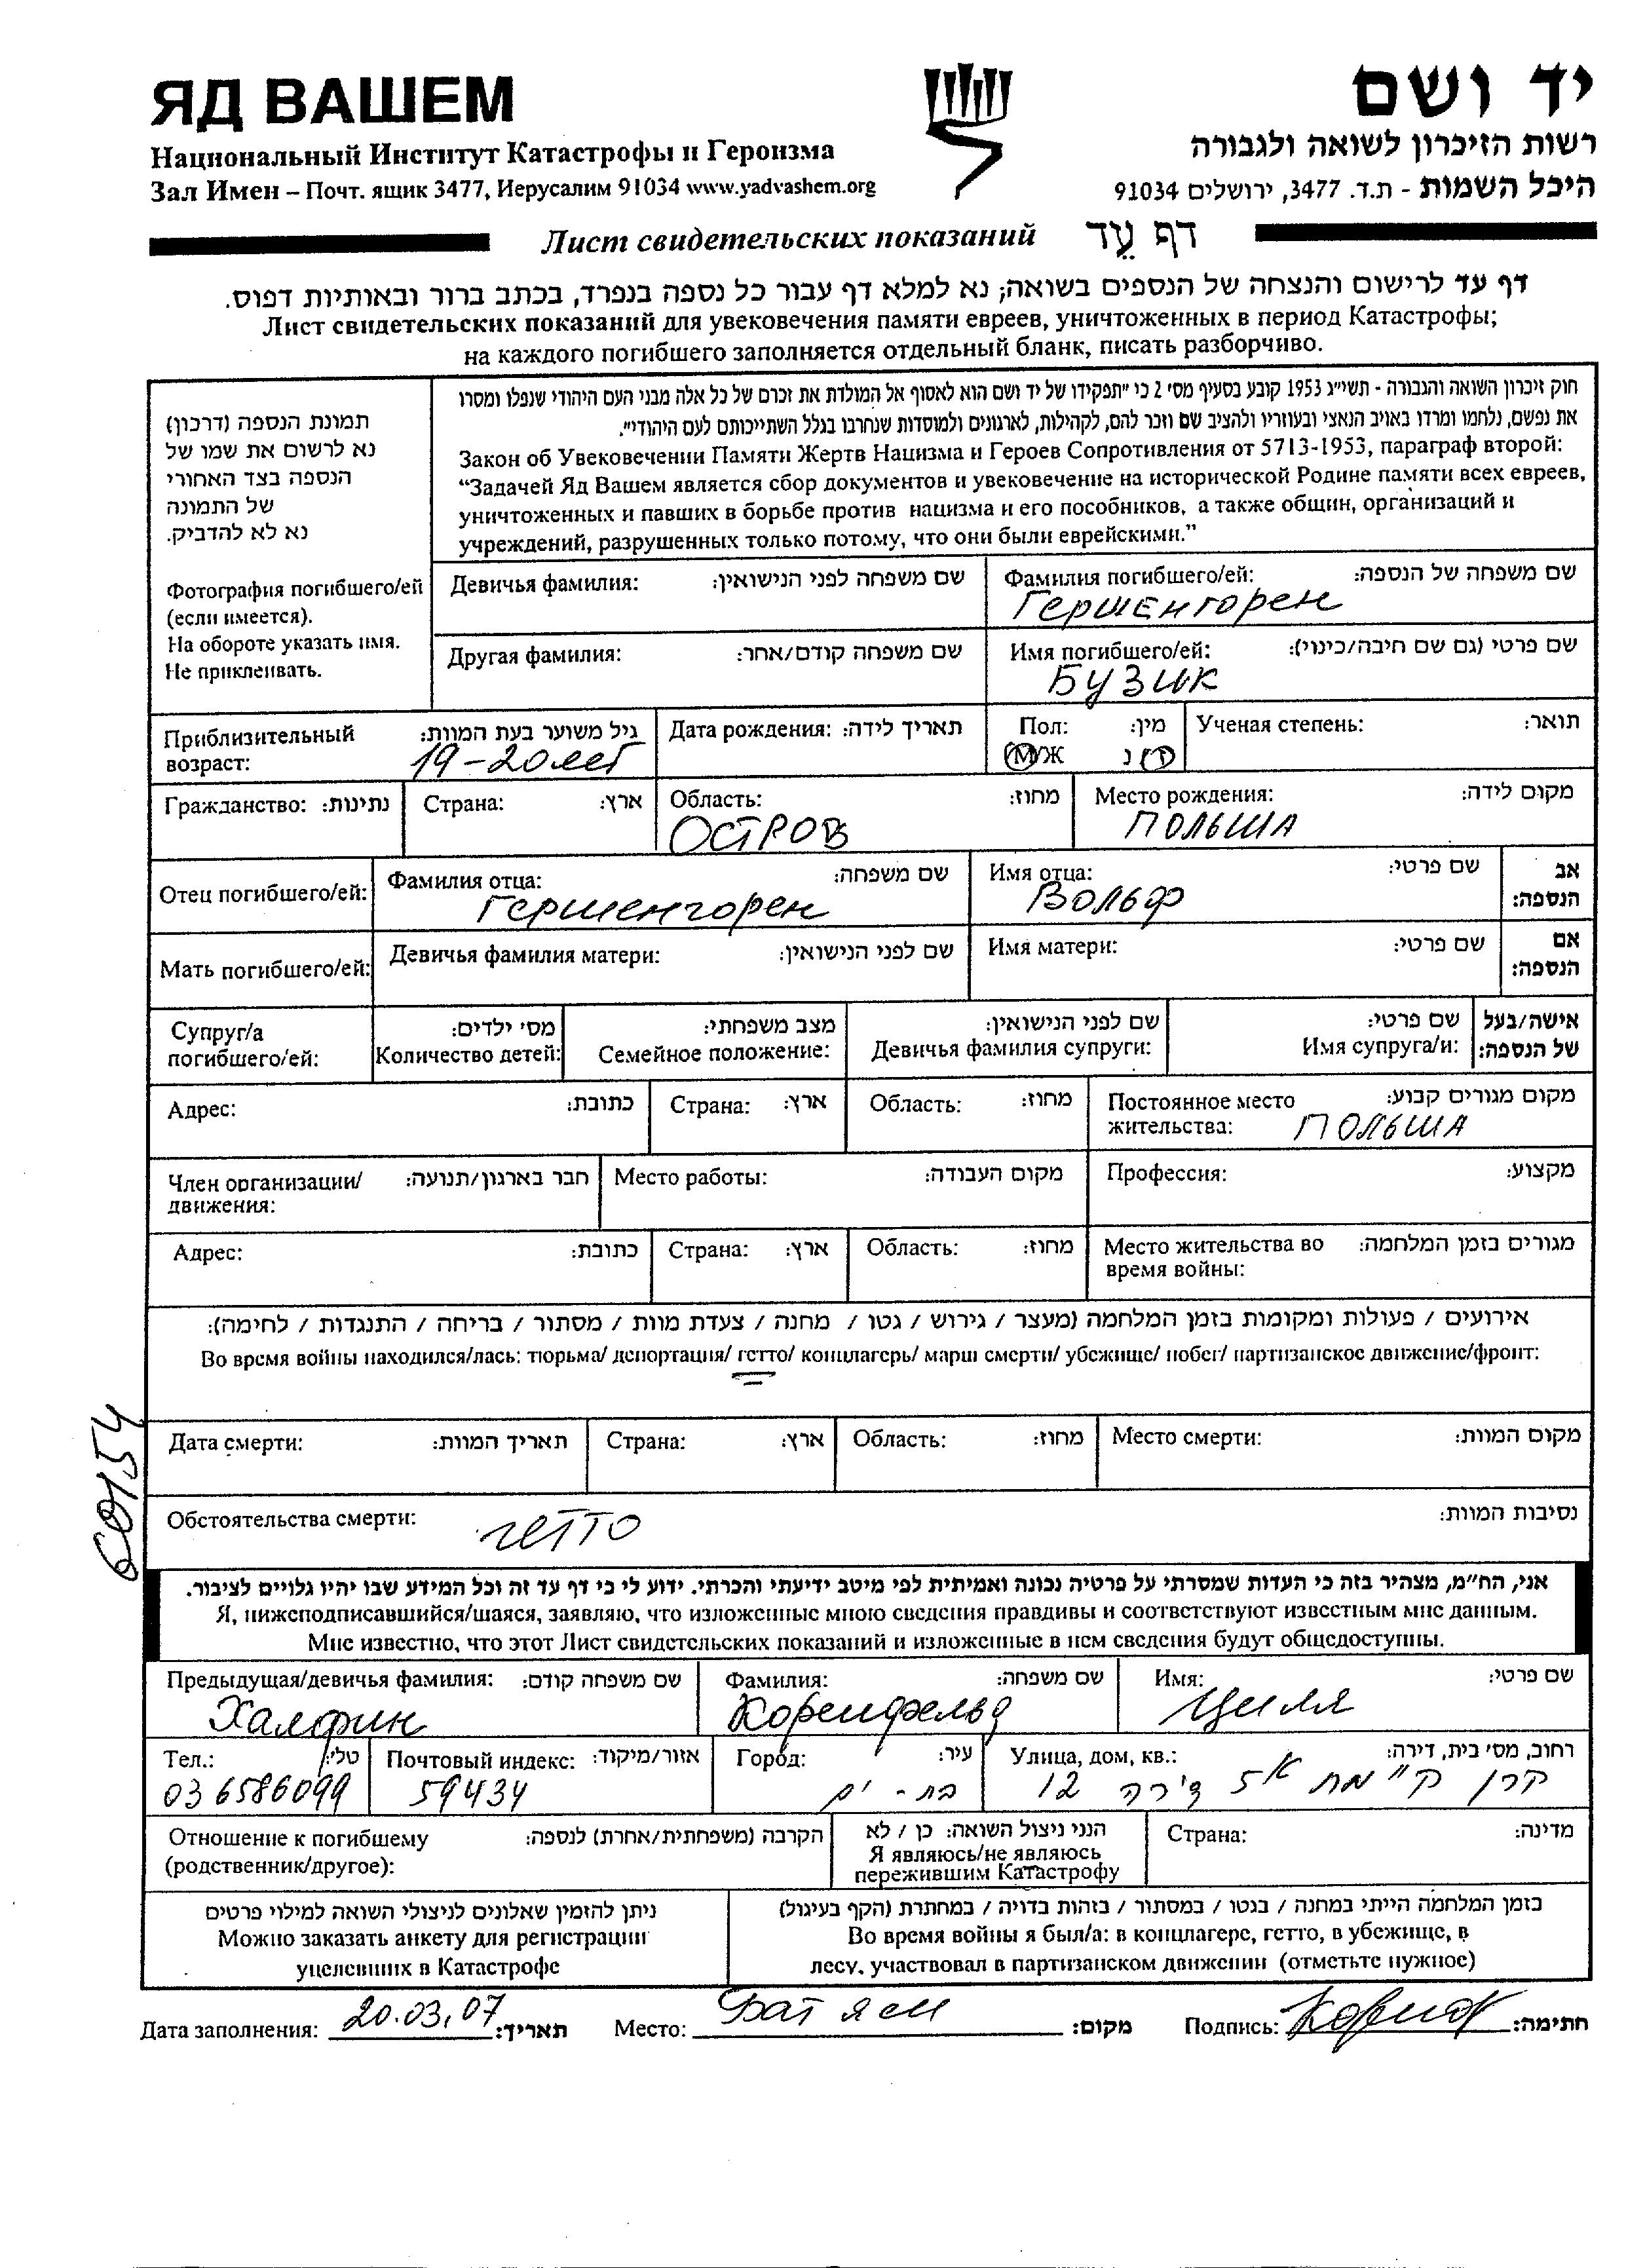 ЯД ВАШЕМ
יד ושם
Национальный Институт Катастрофы и Героизма
רשות הזיכרון לשואה ולגבורה
Зал Имен – Почт. ящик 3477, Иерусалим 91034 www.yadvashem.org
היכל השמות - ת.ד. 3477, ירושלים 91034
Лист свидетельских показаний דף עֵד
דף עד לרישום והנצחה של הנספים בשואה; נא למלא דף עבור כל נספה בנפרד, בכתב ברור ובאותיות דפוס.
Лист свидетельских показаний для увековечения памяти евреев, уничтоженных в период Катастрофы;
на каждого погибшего заполняется отдельный бланк, писать разборчиво.
תמונת הנספה (דרכון)
נא לרשום את שמו של
הנספה בצד האחורי
של התמונה
נא לא להדביק.
Фотография погибшего/ей
(если имеется).
На обороте указать имя.
Не приклеивать.
חוק זיכרון השואה והגבורה - תשי״ג 1953 קובע בסעיף מס׳ 2 כי ״תפקידו של יד ושם הוא לאסוף אל המולדת את זכרם של כל אלה מבני העם היהודי שנפלו ומסרו
את נפשם, נלחמו ומרדו באויב הנאצי ובעוזריו ולהציב שם וזכר להם, לקהילות, לארגונים ולמוסדות שנחרבו בגלל השתייכותם לעם היהודי״.
Закон об Увековечении Памяти Жертв Нацизма и Героев Сопротивления от 5713-1953, параграф второй:
“Задачей Яд Вашем является сбор документов и увековечение на исторической Родине памяти всех евреев,
уничтоженных и павших в борьбе против нацизма и его пособников, а также общин, организаций и
учреждений, разрушенных только потому, что они были еврейскими.”
Девичья фамилия: שם משפחה לפני הנישואין:
Фамилия погибшего/ей: שם משפחה של הנספה:
Гершенгорен
Другая фамилия: שם משפחה קודם/אחר:
Имя погибшего/ей: שם פרטי (גם שם חיבה/כינוי):
Бузик
Приблизительный возраст: גיל משוער בעת המוות:
19-20 лет
Дата рождения: תאריך לידה:
Пол: מין:
М/Ж ז/נ
Ученая степень: תואר:
Гражданство: נתינות:
Страна: ארץ:
Область: מחוז:
ОСТРОВ
Место рождения: מקום לידה:
ПОЛЬША
Отец погибшего/ей:
Фамилия отца: שם משפחה:
Гершенгорен
Имя отца: שם פרטי:
Вольф
אב הנספה:
Мать погибшего/ей:
Девичья фамилия матери: שם לפני הנישואין:
Имя матери: שם פרטי:
אם הנספה:
Супруг/а погибшего/ей:
מס׳ ילדים:
Количество детей:
מצב משפחתי:
Семейное положение:
שם לפני הנישואין:
Девичья фамилия супруги:
שם פרטי:
Имя супруга/и:
אישה/בעל של הנספה:
Адрес: כתובת:
Страна: ארץ:
Область: מחוז:
Постоянное место жительства: מקום מגורים קבוע:
ПОЛЬША
Член организации/ движения: חבר בארגון/תנועה:
Место работы: מקום העבודה:
Профессия: מקצוע:
Адрес: כתובת:
Страна: ארץ:
Область: מחוז:
Место жительства во время войны: מגורים בזמן המלחמה:
אירועים / פעולות ומקומות בזמן המלחמה (מעצר / גירוש / גטו / מחנה / צעדת מוות / מסתור / בריחה / התנגדות / לחימה):
Во время войны находился/лась: тюрьма/ депортация/ гетто/ концлагерь/ марш смерти/ убежище/ побег/ партизанское движение/фронт:
60154
Дата смерти: תאריך המוות:
Страна: ארץ:
Область: מחוז:
Место смерти: מקום המוות:
Обстоятельства смерти: נסיבות המוות:
гетто
אני, הח״מ, מצהיר בזה כי העדות שמסרתי על פרטיה נכונה ואמיתית לפי מיטב ידיעתי והכרתי. ידוע לי כי דף עד זה וכל המידע שבו יהיו גלויים לציבור.
Я, нижеподписавшийся/шаяся, заявляю, что изложенные мною сведения правдивы и соответствуют известным мне данным.
Мне известно, что этот Лист свидетельских показаний и изложенные в нем сведения будут общедоступны.
Предыдущая/девичья фамилия: שם משפחה קודם:
Халфин
Фамилия: שם משפחה:
Коренфельд
Имя: שם פרטי:
Циля
Тел.: טלי:
03 6586099
Почтовый индекс: אזור/מיקוד:
59434
Город: עיר:
בת-ים
Улица, дом, кв.: רחוב, מס׳ בית, דירה:
קרן ק״מת 5א דירה 12
Отношение к погибшему (родственник/другое): הקרבה (משפחתית/אחרת) לנספה:
הנני ניצול השואה: כן / לא
Я являюсь/не являюсь
пережившим Катастрофу
Страна: מדינה:
ניתן להזמין שאלונים לניצולי השואה למילוי פרטים
Можно заказать анкету для регистрации
уцелевших в Катастрофе
בזמן המלחמה הייתי במחנה / בגטו / במסתור / בזהות בדויה / במחתרת (הקף בעיגול)
Во время войны я был/а: в концлагере, гетто, в убежище, в
лесу, участвовал в партизанском движении (отметьте нужное)
Дата заполнения: 20.03.07 תאריך: Место: Бат Ям מקום: Подпись: חתימה: